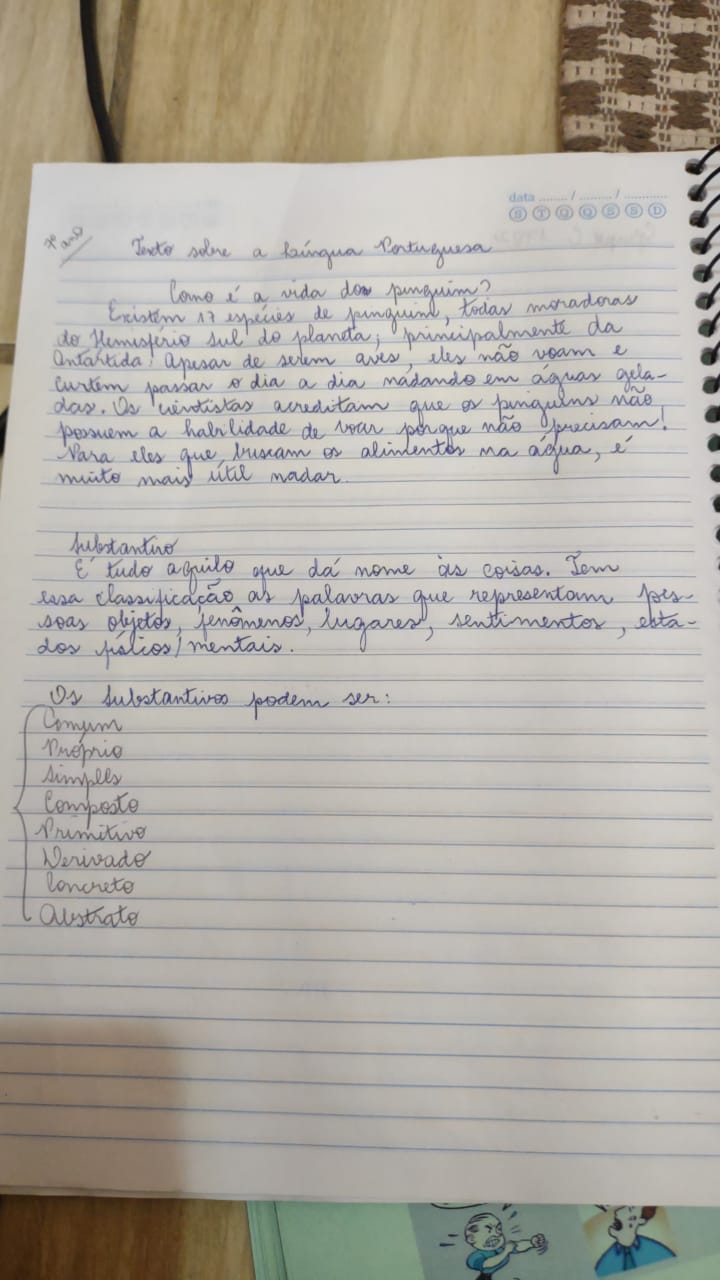 data ......... / ......... / ............
S T Q Q S S D
7º ano
Texto sobre a Língua Portuguesa
Como é a vida dos pinguim?
Existem 17 espécies de pinguim, todas moradoras
do Hemisfério sul do planeta, principalmente da
Antártida. Apesar de serem aves, eles não voam e
curtem passar o dia a dia nadando em águas gela-
das. Os cientistas acreditam que os pinguins não
possuem a habilidade de voar porque não precisam!
Para eles que buscam os alimentos na água, é
muito mais útil nadar.
Substantivo
É tudo aquilo que dá nome às coisas. Tem
essa classificação as palavras que representam pes-
soas objetos, fenômenos, lugares, sentimentos, esta-
dos físicos/mentais.
Os Substantivos podem ser:
Comum
Próprio
Simples
Composto
Primitivo
Derivado
Concreto
Abstrato